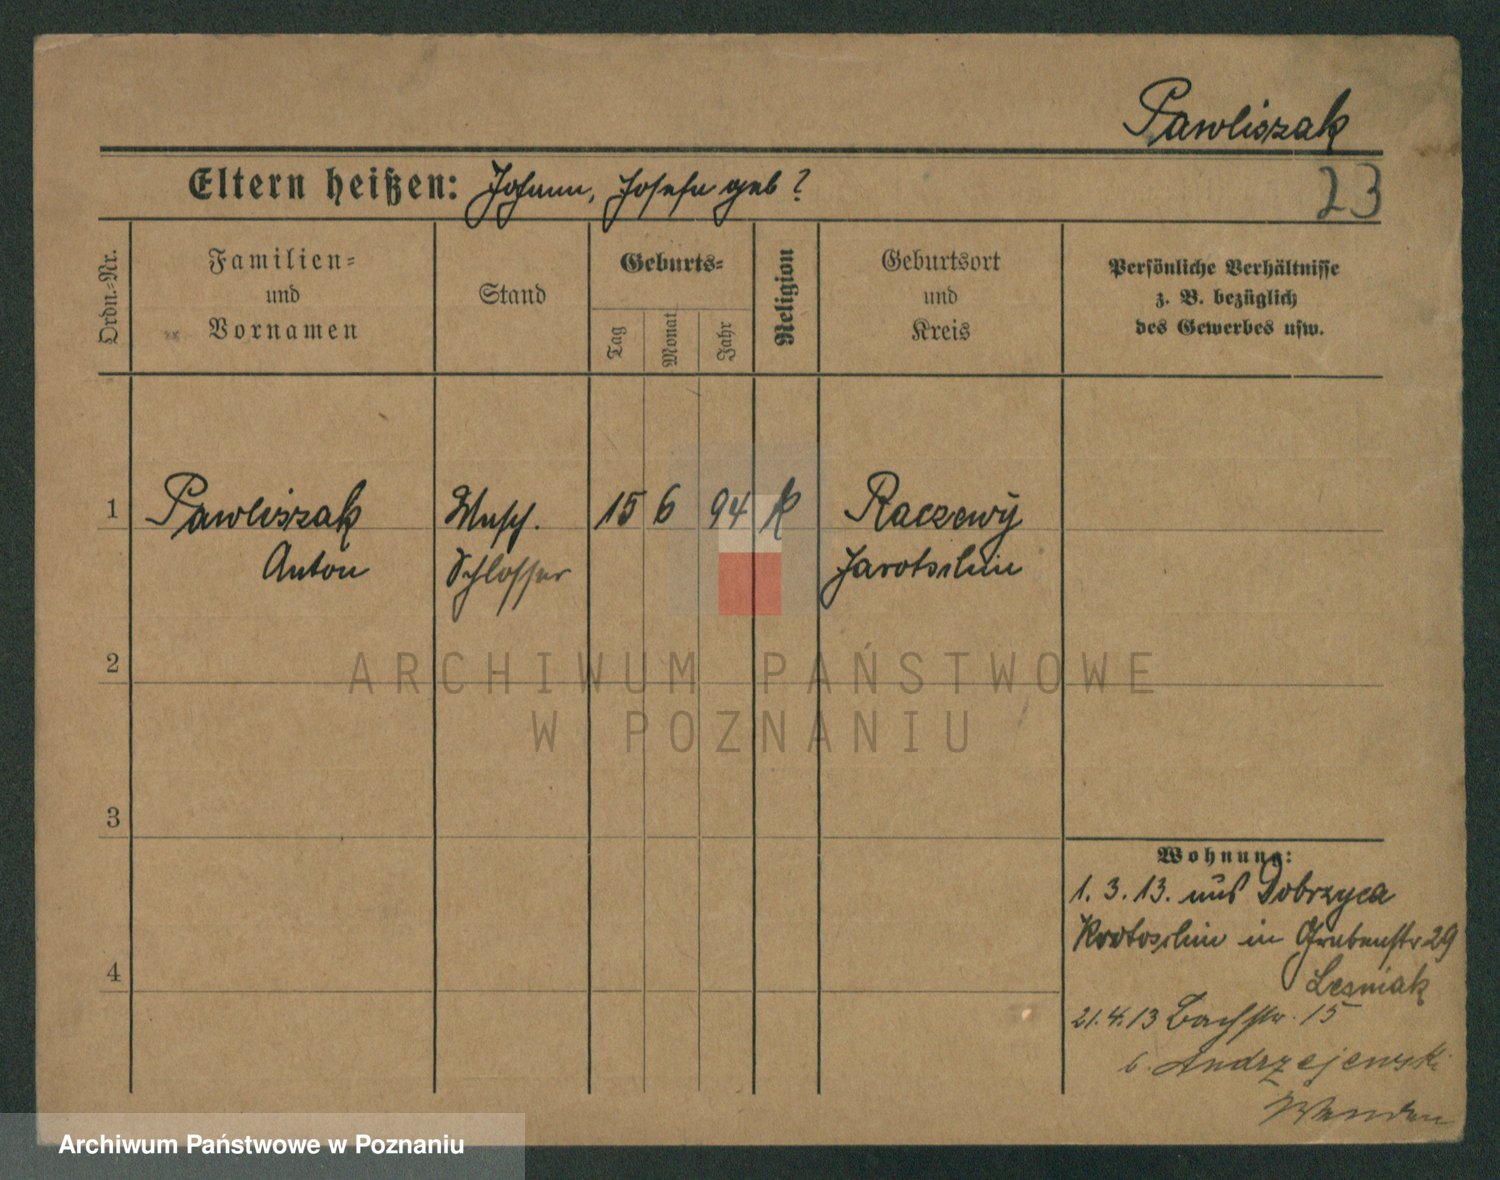 Pawliszak
Eltern heißen: Johann, Josefa geb?
23
Ordn.-Nr.
Familien-
und
Vornamen
Stand
Geburts-
Tag
Monat
Jahr
Religion
Geburtsort
und
Kreis
Persönliche Verhältnisse
z. B. bezüglich
des Gewerbes usw.
1 Pawliszak Masch. 15 6 94 k Raczewy
Anton Schlosser Jarotschin
2
ARCHIWUM PAŃSTWOWE
W POZNANIU
3
Wohnung:
1. 3. 13. aus Dobrzyca
Krotoschin in Grabenstr 29
4
Lesniak
21.4.13 Bachstr. 15
b. Andrzejewski
Archiwum Państwowe w Poznaniu